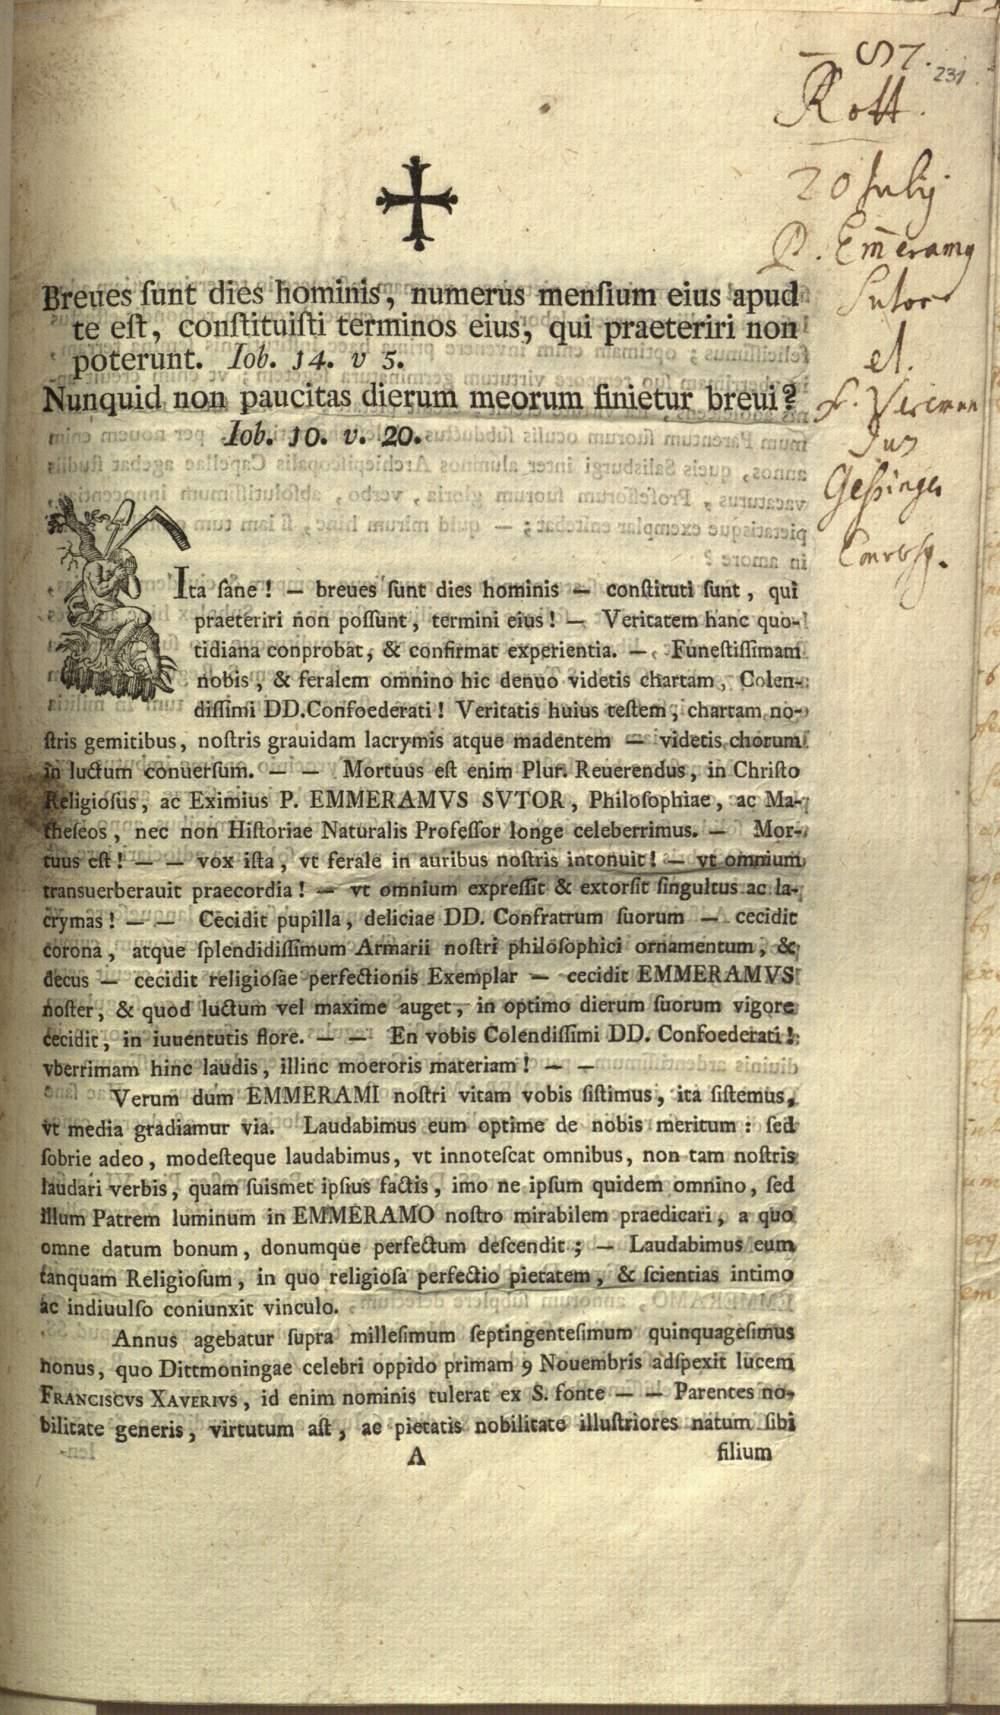 87.
231
Rott.
20 Julij
P. Em̄eramq
Sutor
et
fr.
Gessinger
Breues ſunt dies hominis, numerus menſium eius apud
te eſt, conſtituiſti terminos eius, qui praeteriri non
poterunt. Iob. 14. v 5.
Nunquid non paucitas dierum meorum finietur breui?
Iob. 10. v. 20.
Ita ſane! — breues ſunt dies hominis — conſtituti ſunt, qui
praeteriri non poſſunt, termini eius! — Veritatem hanc quo-
tidiana conprobat, & confirmat experientia. — Funeſtiſſimam
nobis, & feralem omnino hic denuo videtis chartam, Colen-
diſſimi DD. Confoederati! Veritatis huius teſtem, chartam no-
ſtris gemitibus, noſtris grauidam lacrymis atque madentem — videtis chorum
in luctum conuerſum. — — Mortuus eſt enim Plur. Reuerendus, in Chriſto
Religioſus, ac Eximius P. EMMERAMVS SVTOR, Philoſophiae, ac Ma-
theſeos, nec non Hiſtoriae Naturalis Profeſſor longe celeberrimus. — Mor-
tuus eſt! — — vox iſta, vt ferale in auribus noſtris intonuit! — vt omnium
transuerberauit praecordia! — vt omnium expreſſit & extorſit ſingultus ac la-
crymas! — — Cecidit pupilla, deliciae DD. Confratrum ſuorum — cecidit
corona, atque ſplendidiſſimum Armarii noſtri philoſophici ornamentum, &
decus — cecidit religioſae perfectionis Exemplar — cecidit EMMERAMVS
noſter, & quod luctum vel maxime auget, in optimo dierum ſuorum vigore
cecidit, in iuuentutis flore. — — En vobis Colendiſſimi DD. Confoederati!
vberrimam hinc laudis, illinc moeroris materiam! — —
Verum dum EMMERAMI noſtri vitam vobis ſiſtimus, ita ſiſtemus,
vt media gradiamur via. Laudabimus eum optime de nobis meritum: ſed
ſobrie adeo, modeſteque laudabimus, vt innoteſcat omnibus, non tam noſtris
laudari verbis, quam ſuismet ipſius factis, imo ne ipſum quidem omnino, ſed
illum Patrem luminum in EMMERAMO noſtro mirabilem praedicari, a quo
omne datum bonum, donumque perfectum deſcendit; — Laudabimus eum
tanquam Religioſum, in quo religioſa perfectio pietatem, & ſcientias intimo
ac indiuulſo coniunxit vinculo.
Annus agebatur ſupra milleſimum ſeptingenteſimum quinquageſimus
nonus, quo Dittmoningae celebri oppido primam 9 Nouembris adſpexit lucem
FRANCISCVS XAVERIVS, id enim nominis tulerat ex S. fonte — — Parentes no-
bilitate generis, virtutum aſt, ac pietatis nobilitate illuſtriores natum ſibi
A
filium